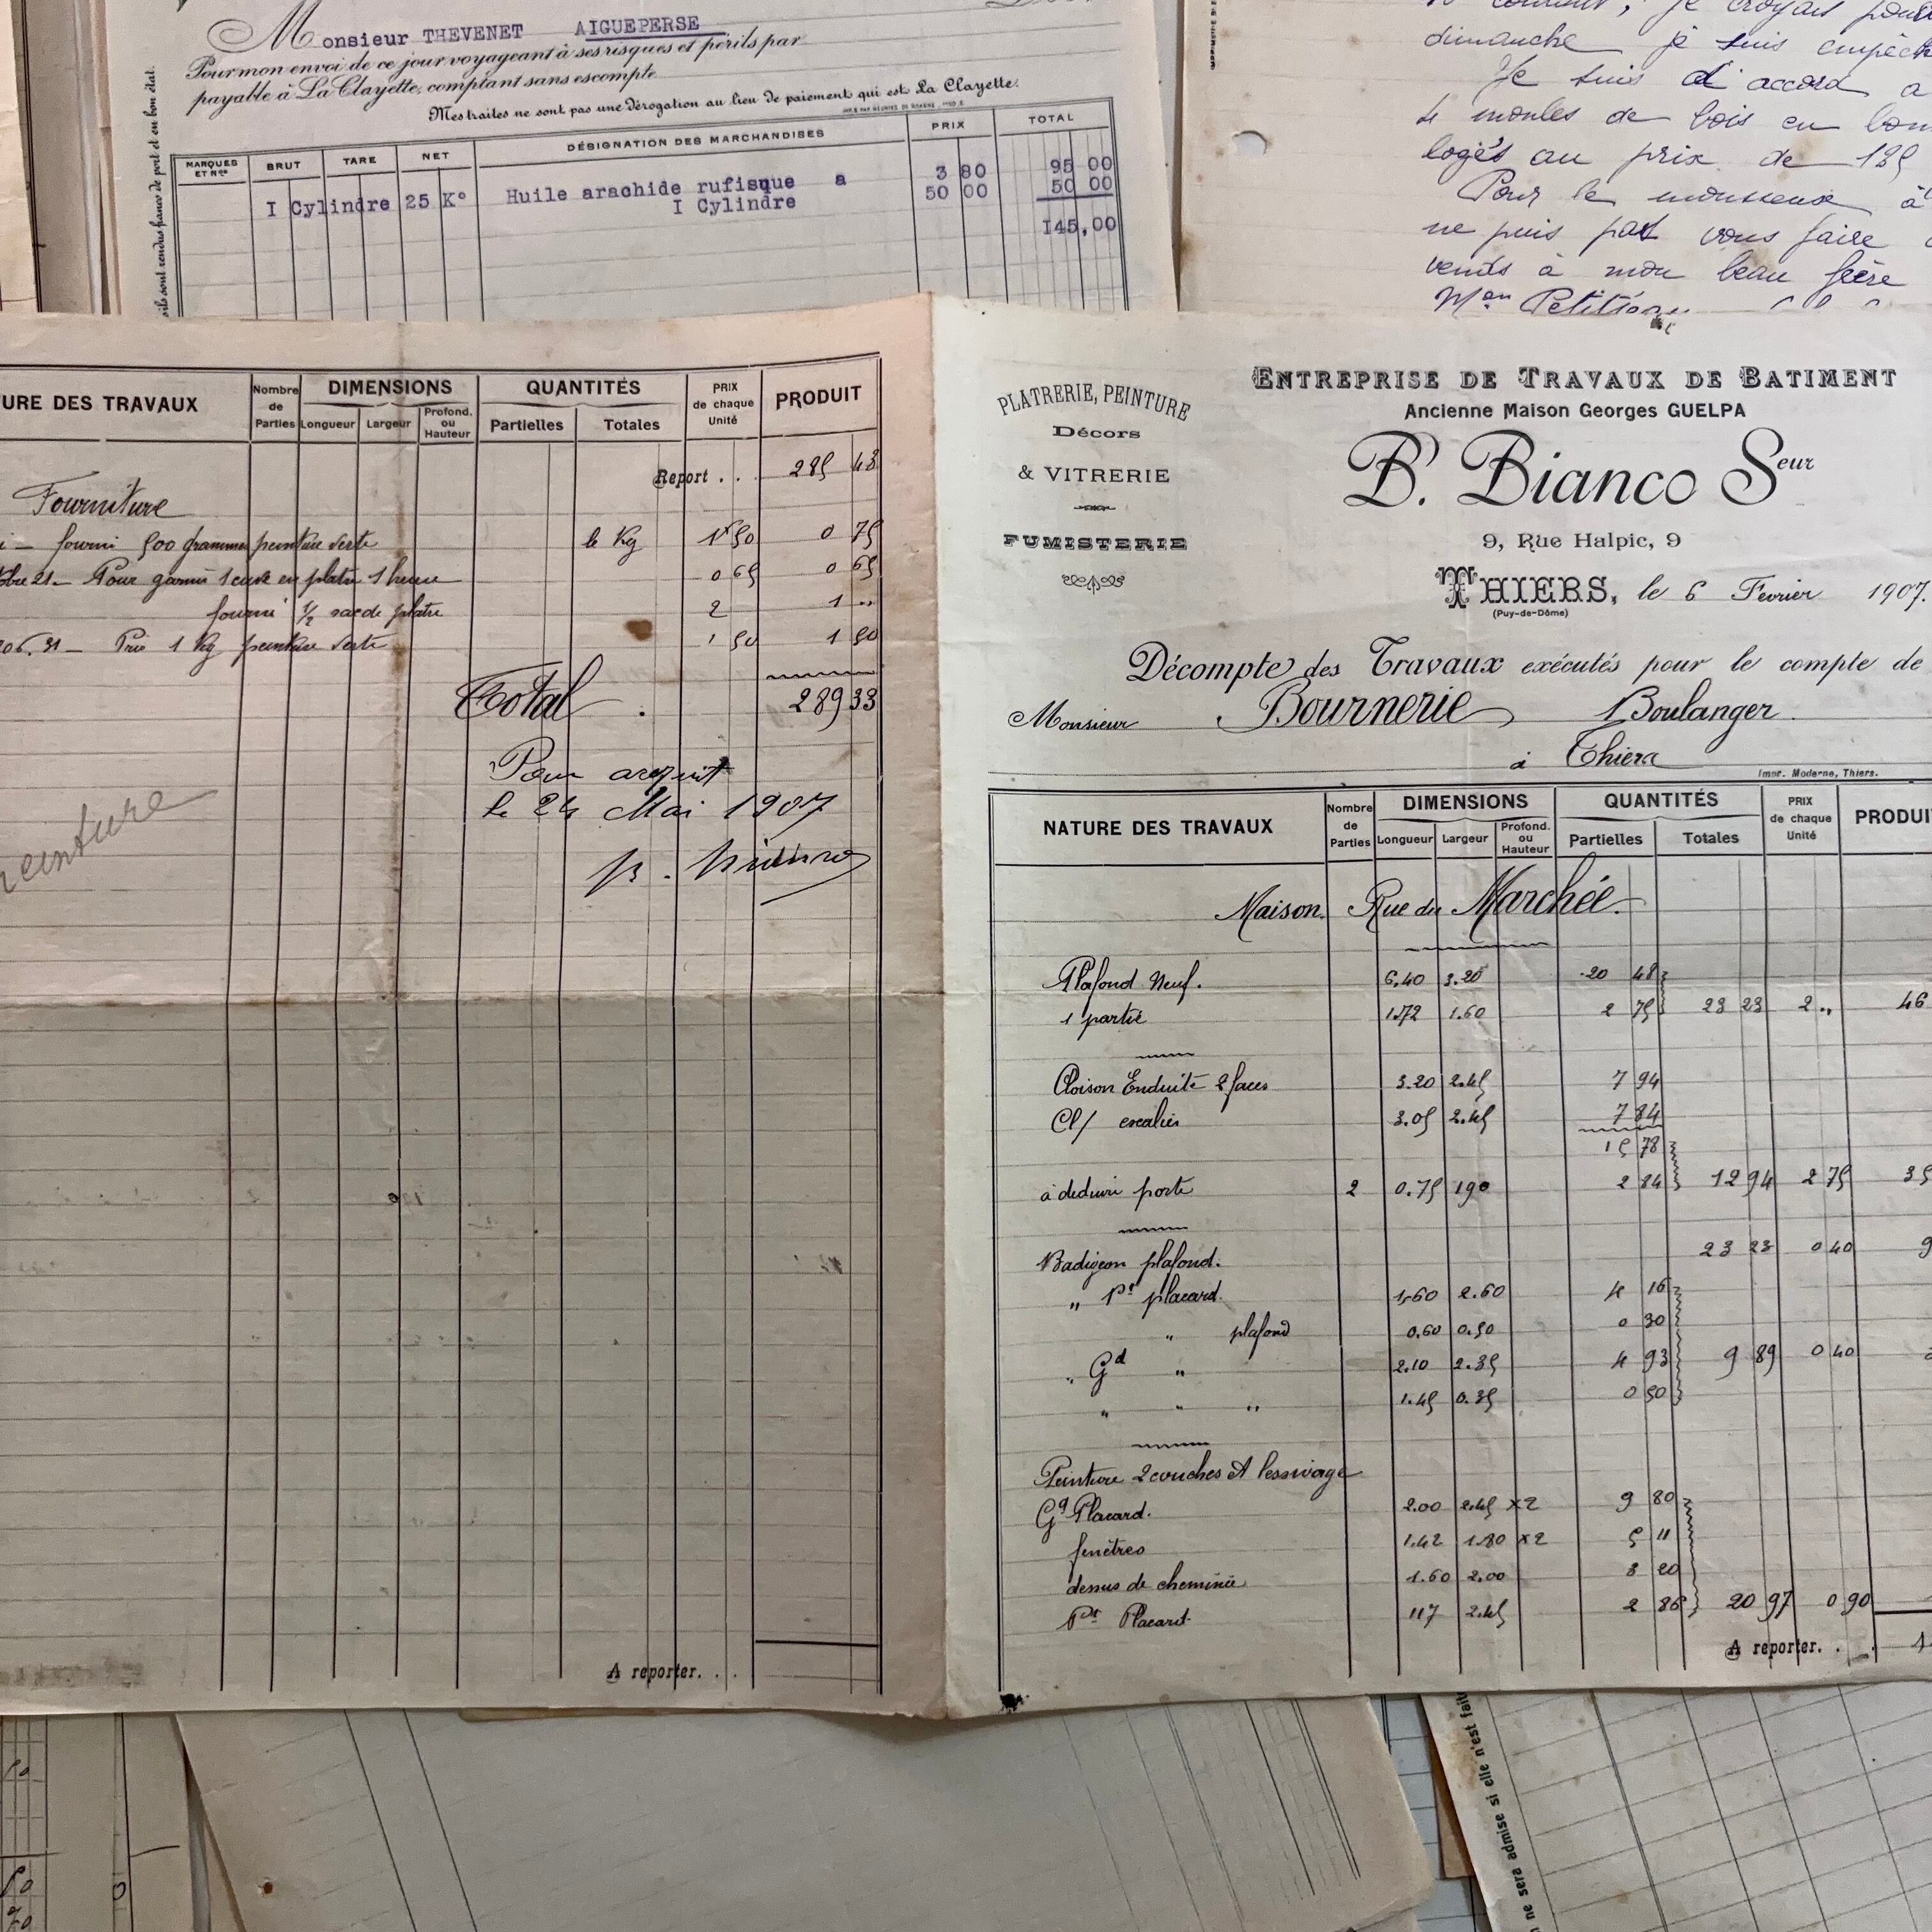 Monsieur THEVENET AIGUEPERSE
Pour mon envoi de ce jour voyageant à ses risques et périls par
payable à La Clayette, comptant sans escompte
Mes traites ne sont pas une dérogation au lieu de paiement qui est La Clayette.
sils sont rendus franco de port et en bon état.
MARQUES ET Nos BRUT TARE NET DÉSIGNATION DES MARCHANDISES PRIX TOTAL
I Cylindre 25 K° Huile arachide rufisque a 3 80 95 00
I Cylindre 50 00 50 00
145,00
je croyais
dimanche je suis empêché
Je suis d'accord a
4 moules de bois en bon
logés au prix de 185
Pour le mousseux à
ne puis pas vous faire
vends à mon beau frère
Mon Petitjean
URE DES TRAVAUX Nombre de Parties DIMENSIONS Longueur Largeur Profond. ou Hauteur QUANTITÉS Partielles Totales PRIX de chaque Unité PRODUIT
Report . . 285 43
Fourniture
fourni 500 grammes peinture verte le Kg 1f50 0 75
bre 21. Pour garnir 1 cuve en platre 1 heure 0 65 0 65
fourni 1/2 sac de platre 2 1 "
06. 31 _ Pris 1 Kg peinture verte 1 50 1 50
Total . 289 33
Pour acquit
le 24 Mai 1907
B. Bianco
peinture
A reporter. . .
PLATRERIE, PEINTURE
Décors
& VITRERIE
FUMISTERIE
ENTREPRISE DE TRAVAUX DE BATIMENT
Ancienne Maison Georges GUELPA
B. Bianco Seur
9, Rue Halpic, 9
THIERS, le 6 Fevrier 1907.
(Puy-de-Dôme)
Décompte des Travaux exécutés pour le compte de
Monsieur Bournerie Boulanger
à Thiers
Impr. Moderne, Thiers.
NATURE DES TRAVAUX Nombre de Parties DIMENSIONS Longueur Largeur Profond. ou Hauteur QUANTITÉS Partielles Totales PRIX de chaque Unité PRODUI
Maison Rue du Marchée.
Plafond Neuf. 6.40 3.20 20 48
1 partie 1.72 1.60 2 75 23 23 2 " 46
Cloison Enduite 2 faces 3.20 2.45 7 94
Cl/ escalier 3.05 2.45 7 84
15 78
à deduire porte 2 0.75 190 2 84 12 94 2 75 35
Badigeon plafond. 23 23 0 40 9
" Pt placard. 1.60 2.60 4 16
" plafond 0.60 0.50 0 30
" Gd " 2.10 2.35 4 93 9 89 0 40
" " " 1.45 0.35 0 50
Peinture 2 couches et lessivage
Gd Placard. 2.00 2.45 x2 9 80
fenêtres 1.42 1.80 x2 5 11
dessus de cheminée 1.60 2.00 3 20
Pt Placard 117 2.45 2 86 20 97 0 90
A reporter. . . 1
ne sera admise si elle n'est faite